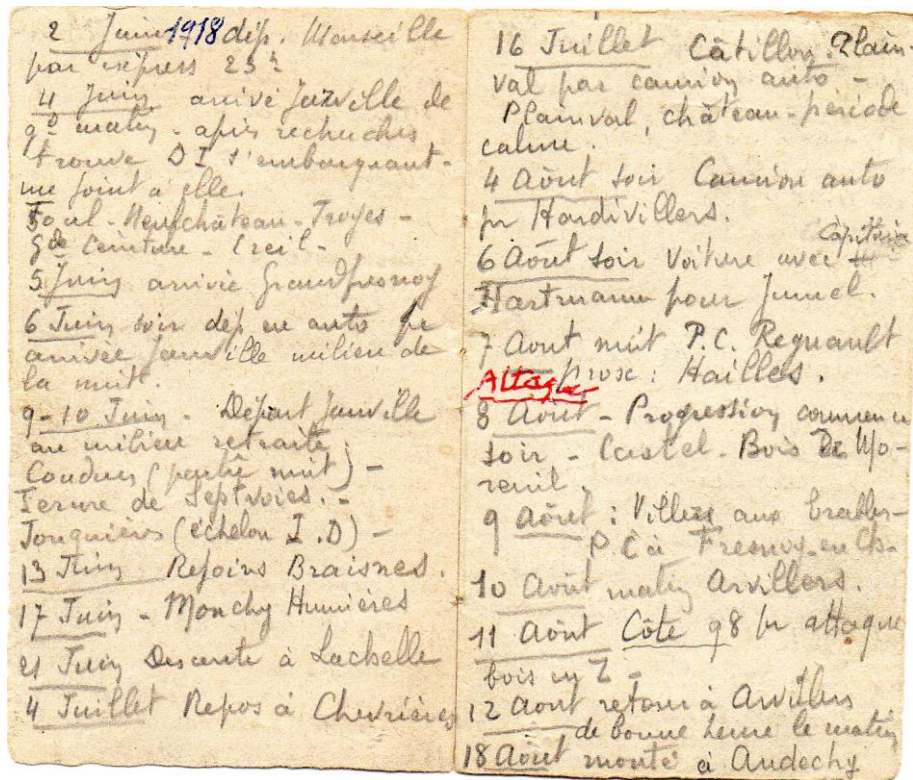 2 Juin 1918 dép. Marseille
par express 23h
4 Juin arrivé Jarville de
9h matin - après recherches
trouve DI s'embarquant -
me joint à elle.
Toul - Neufchâteau - Troyes -
Gde Ceinture - Creil -
5 Juin arrivée Grandfresnoy
6 Juin soir dép en auto pr
arrivée Janville milieu de
la nuit.
9-10 Juin - Départ Janville
au milieu retraite
Coudun (partie nuit) -
Ferme de Septvoies. -
Jonquières (échelon I.D) -
13 Juin Rejoins Braisnes.
17 Juin - Monchy Humières
21 Juin Descente à Lachelle
4 Juillet Repos à Chevrières
16 Juillet Câtillon. Plain
val par camion auto -
Plainval, château - période
calme.
4 Août soir Camion auto
pr Hardivillers.
6 Août soir Voiture avec Capitaine
Hartmann pour Jumel.
7 Aout nuit P.C. Regnault
prox : Hailles.
Attaque
8 Août - Progression commence
soir - Castel - Bois de Mo-
reuil.
9 Août : Villers aux Erables -
P.C à Fresnoy-en-Ch-
10 Août matin Arvillers.
11 Août Côte 98 pr attaque
bois en Z -
12 Aout retour à Arvillers
de bonne heure le matin
18 Août monté à Andechy